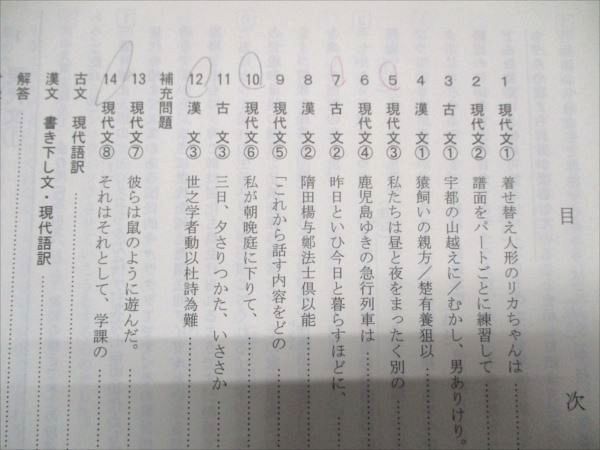 目次
1 現代文① 着せ替え人形のリカちゃんは
2 現代文② 譜面をパートごとに練習して
3 古文① 宇都の山越えに／むかし、男ありけり。
4 漢文① 猿飼いの親方／楚有養狙以
5 現代文③ 私たちは昼と夜をまったく別の
6 現代文④ 鹿児島ゆきの急行列車は
7 古文② 昨日といひ今日と暮らすほどに、
8 漢文② 隋田楊与鄭法士倶以能
9 現代文⑤ 「これから話す内容をどの
10 現代文⑥ 私が朝晩庭に下りて、
11 古文③ 三日、夕さりつかた、いささか
12 漢文③ 世之学者動以杜詩為難
補充問題
13 現代文⑦ 彼らは鼠のように遊んだ。
14 現代文⑧ それはそれとして、学課の
古文 現代語訳
漢文 書き下し文・現代語訳
解答